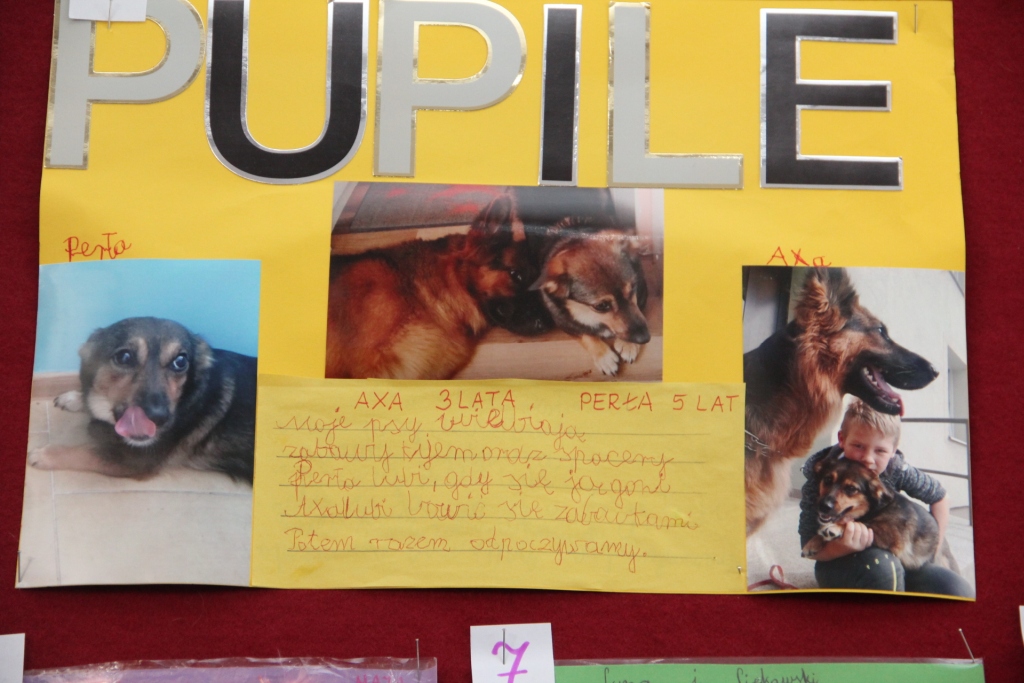 PUPILE
Perła
Axa
AXA 3 LATA PERŁA 5 LAT
Moje psy uwielbiają
zabawy kijem oraz spacery
Perła lubi, gdy się ją goni
Axa lubi bawić się zabawkami
Potem razem odpoczywamy.
7